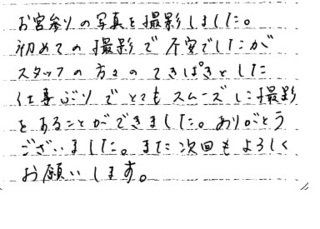 お宮参りの写真を撮影しました。
初めての撮影で不安でしたが
スタッフの方々のてきぱきとした
仕事ぶりでとてもスムーズに撮影
をすることができました。ありがとう
ございました。また次回もよろしく
お願いします。